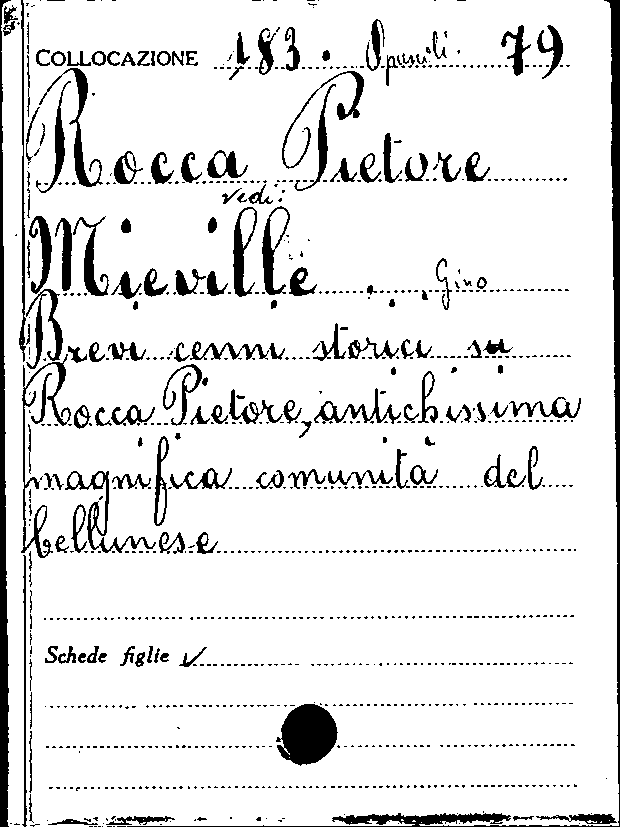 COLLOCAZIONE 183. Opuscoli. 79
Rocca Pietore
vedi:
Mieville Gino
Brevi cenni storici su
Rocca Pietore, antichissima
magnifica comunità del
bellunese
Schede figlie ✓